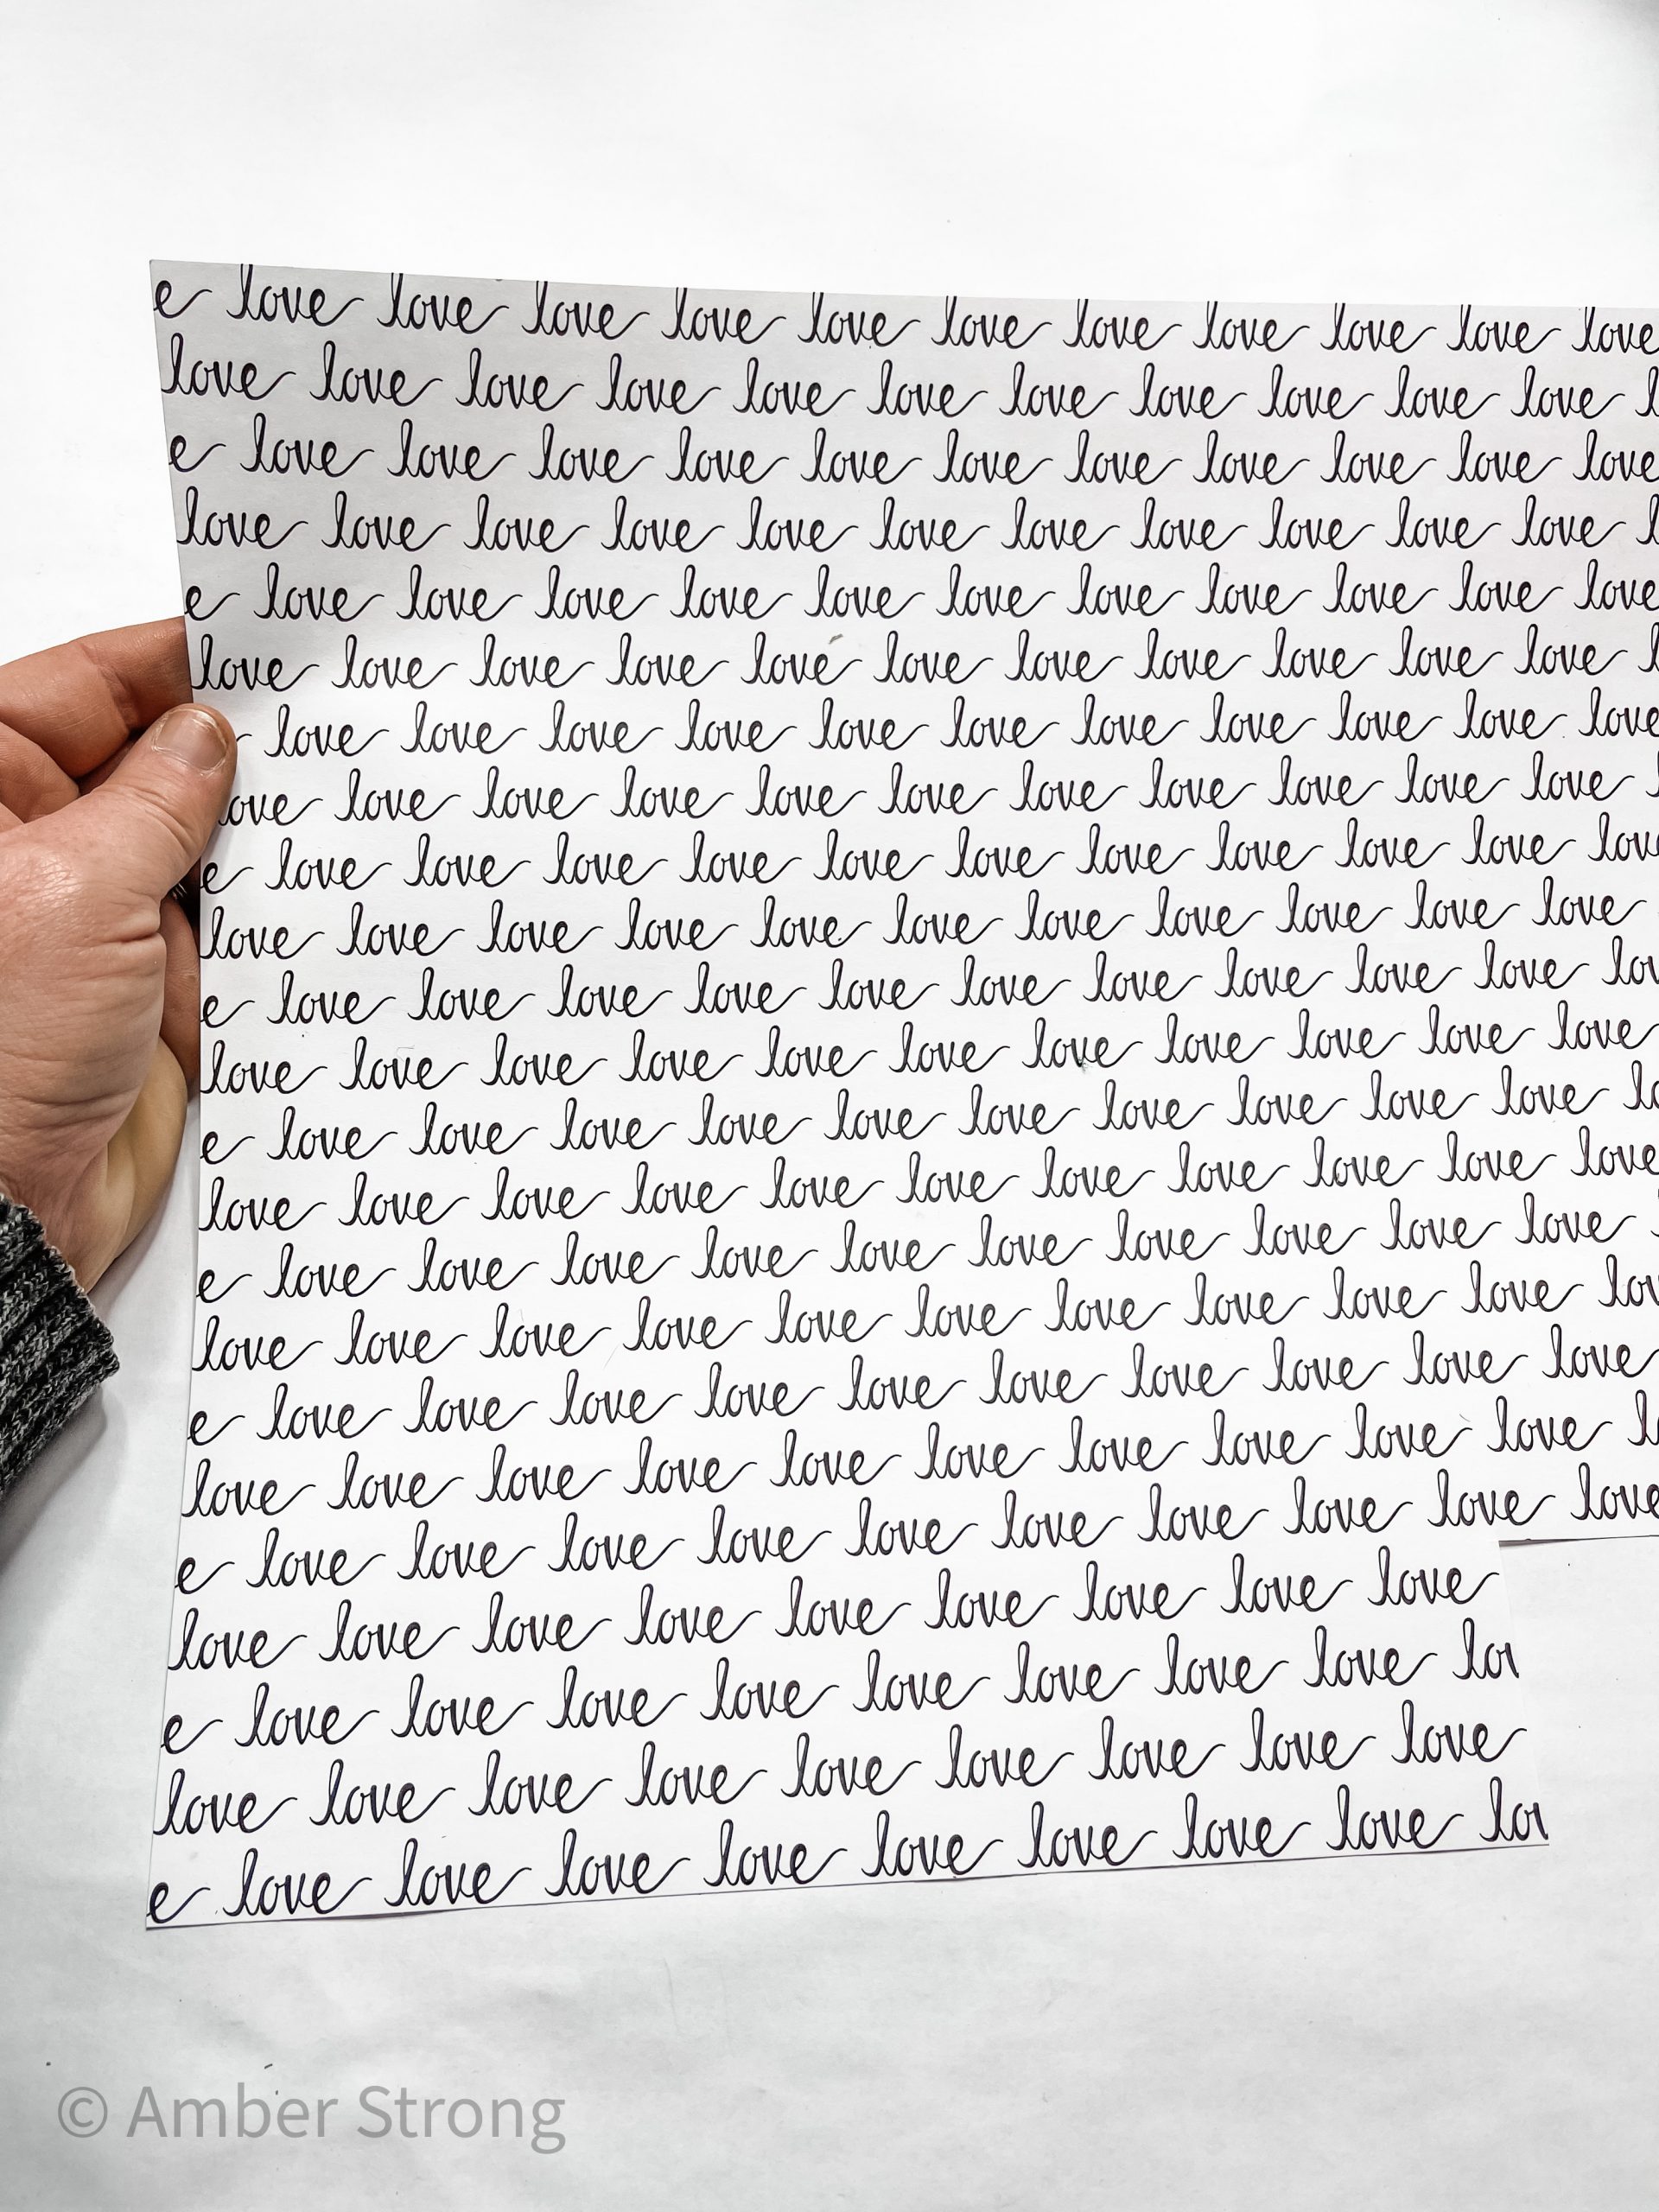 e love love love love love love love love love love love
love love love love love love love love love love love l
e love love love love love love love love love love love
love love love love love love love love love love love l
e love love love love love love love love love love love
love love love love love love love love love love love l
love love love love love love love love love love love
ove love love love love love love love love love love
e love love love love love love love love love love lov
love love love love love love love love love love love
e love love love love love love love love love love lov
love love love love love love love love love love love
e love love love love love love love love love love lo
love love love love love love love love love love love
e love love love love love love love love love love
love love love love love love love love love love lov
e love love love love love love love love love love
love love love love love love love love love love l
e love love love love love love love love love love
love love love love love love love love love
e love love love love love love love love lov
love love love love love love love love love
e love love love love love love love love lov
© Amber Strong